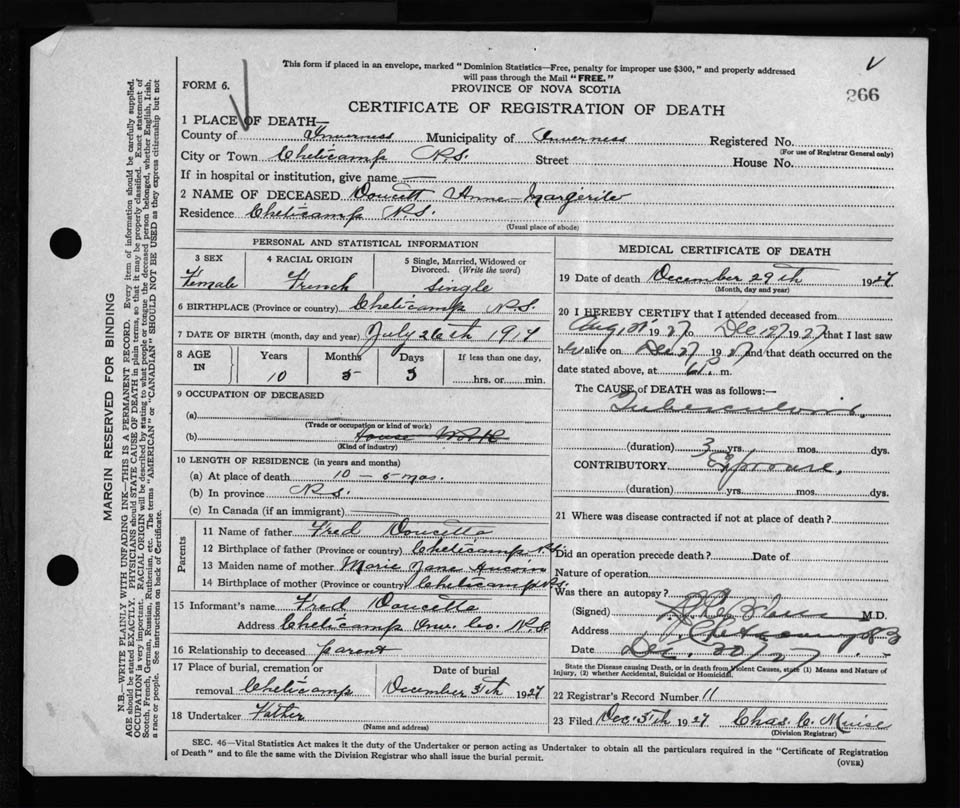 This form if placed in an envelope, marked "Dominion Statistics—Free, penalty for improper use $300," and properly addressed
will pass through the Mail "FREE."
FORM 6.
PROVINCE OF NOVA SCOTIA
266
CERTIFICATE OF REGISTRATION OF DEATH
1 PLACE OF DEATH—
County of Inverness Municipality of Inverness Registered No.
(For use of Registrar General only)
City or Town Cheticamp N.S. Street House No.
If in hospital or institution, give name
2 NAME OF DECEASED Doucett Anne Margerite
Residence Cheticamp N.S.
(Usual place of abode)
PERSONAL AND STATISTICAL INFORMATION
3 SEX 4 RACIAL ORIGIN 5 Single, Married, Widowed or
Divorced. (Write the word)
Female French Single
6 BIRTHPLACE (Province or country) Cheticamp N.S.
7 DATE OF BIRTH (month, day and year) July 26th 1917
8 AGE IN Years Months Days If less than one day,
10 5 3 hrs. or min.
9 OCCUPATION OF DECEASED
(a)
(Trade or occupation or kind of work)
(b) House Work
(Kind of industry)
10 LENGTH OF RESIDENCE (in years and months)
(a) At place of death 10 - 5 mos.
(b) In province N.S.
(c) In Canada (if an immigrant)
Parents
11 Name of father Fred Doucette
12 Birthplace of father (Province or country) Cheticamp N.S.
13 Maiden name of mother Marie Jane
14 Birthplace of mother (Province or country) Cheticamp N.S.
15 Informant's name Fred Doucette
Address Cheticamp Inv. Co. N.S.
16 Relationship to deceased parent
17 Place of burial, cremation or Date of burial
removal Cheticamp December 1927
18 Undertaker Father
(Name and address)
MEDICAL CERTIFICATE OF DEATH
19 Date of death December 29th 1927
(Month, day and year)
20 I HEREBY CERTIFY that I attended deceased from
Aug 1927 to Dec 27 1927 that I last saw
her alive on Dec 27 1927 and that death occurred on the
date stated above, at 6 P. m.
The CAUSE of DEATH was as follows:—
Tuberculosis
(duration) 3 yrs. mos. dys.
CONTRIBUTORY Exposure.
(duration) yrs. mos. dys.
21 Where was disease contracted if not at place of death?
Did an operation precede death? Date of
Nature of operation
Was there an autopsy?
(Signed) M.D.
Address
Date Dec. 30/27
State the Disease causing Death, or in death from Violent Causes, state (1) Means and Nature of
Injury, (2) whether Accidental, Suicidal or Homicidal.
22 Registrar's Record Number 11
23 Filed Dec. 1927 Chas. C. Muise
(Division Registrar)
SEC. 46—Vital Statistics Act makes it the duty of the Undertaker or person acting as Undertaker to obtain all the particulars required in the "Certificate of Registration
of Death" and to file the same with the Division Registrar who shall issue the burial permit.
(OVER)
MARGIN RESERVED FOR BINDING
N.B.—WRITE PLAINLY WITH UNFADING INK—THIS IS A PERMANENT RECORD. Every item of information should be carefully supplied.
AGE should be stated EXACTLY. PHYSICIANS should STATE CAUSE OF DEATH in plain terms, so that it may be properly classified. Exact statement of
OCCUPATION is very important. RACIAL ORIGIN will be described by stating to what people or tongue the deceased person belonged, whether English, Irish,
Scotch, French, German, Russian, Ruthenian, etc. The terms "AMERICAN" or "CANADIAN" SHOULD NOT BE USED as they express citizenship but not
a race or people. See instructions on back of Certificate.